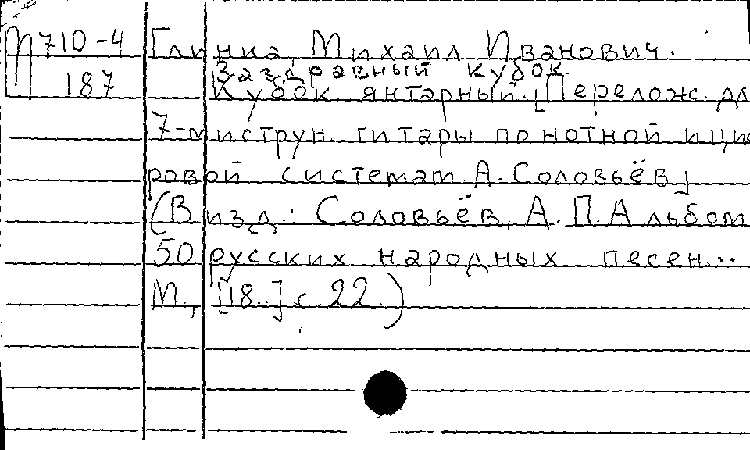 П710-4 Глинка, Михаил Иванович.
Заздравный кубок
187 Кубок янтарный. [Перелож. дл
7-миструн. гитары по нотной и ци
ровой системам А. Соловьёв]
(В изд.: Соловьёв, А.П. Альбом
50 русских народных песен...
М., [18..] с 22.)